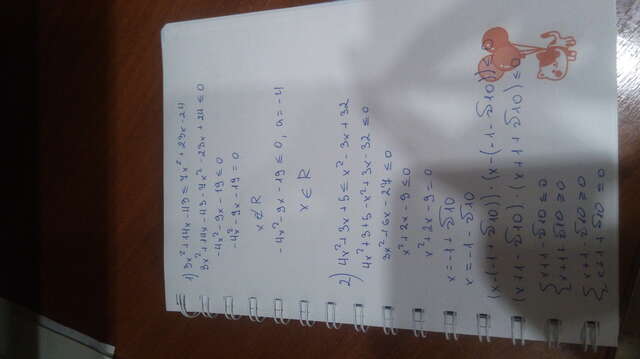 1) 3x² + 14x - 43 ≤ 7x² + 23x - 24
3x² + 14x - 43 - 7x² - 23x + 24 ≤ 0
-4x² - 9x - 19 ≤ 0
-4x² - 9x - 19 = 0
x ∉ R
-4x² - 9x - 19 ≤ 0, a = -4
x ∈ R
2) 4x² + 3x + 5 ≤ x² - 3x + 32
4x² + 3 + 5 - x² + 3x - 32 ≤ 0
3x² + 6x - 27 ≤ 0
x² + 2x - 9 ≤ 0
x² + 2x - 9 = 0
x = -1 + √10
x = -1 - √10
(x - (-1 + √10)) · (x - (-1 - √10)) ≤ 0
(x + 1 - √10) · (x + 1 + √10) ≤ 0
{ x + 1 - √10 ≤ 0
x + 1 + √10 ≥ 0
{ x + 1 - √10 ≥ 0
x + 1 + √10 ≤ 0